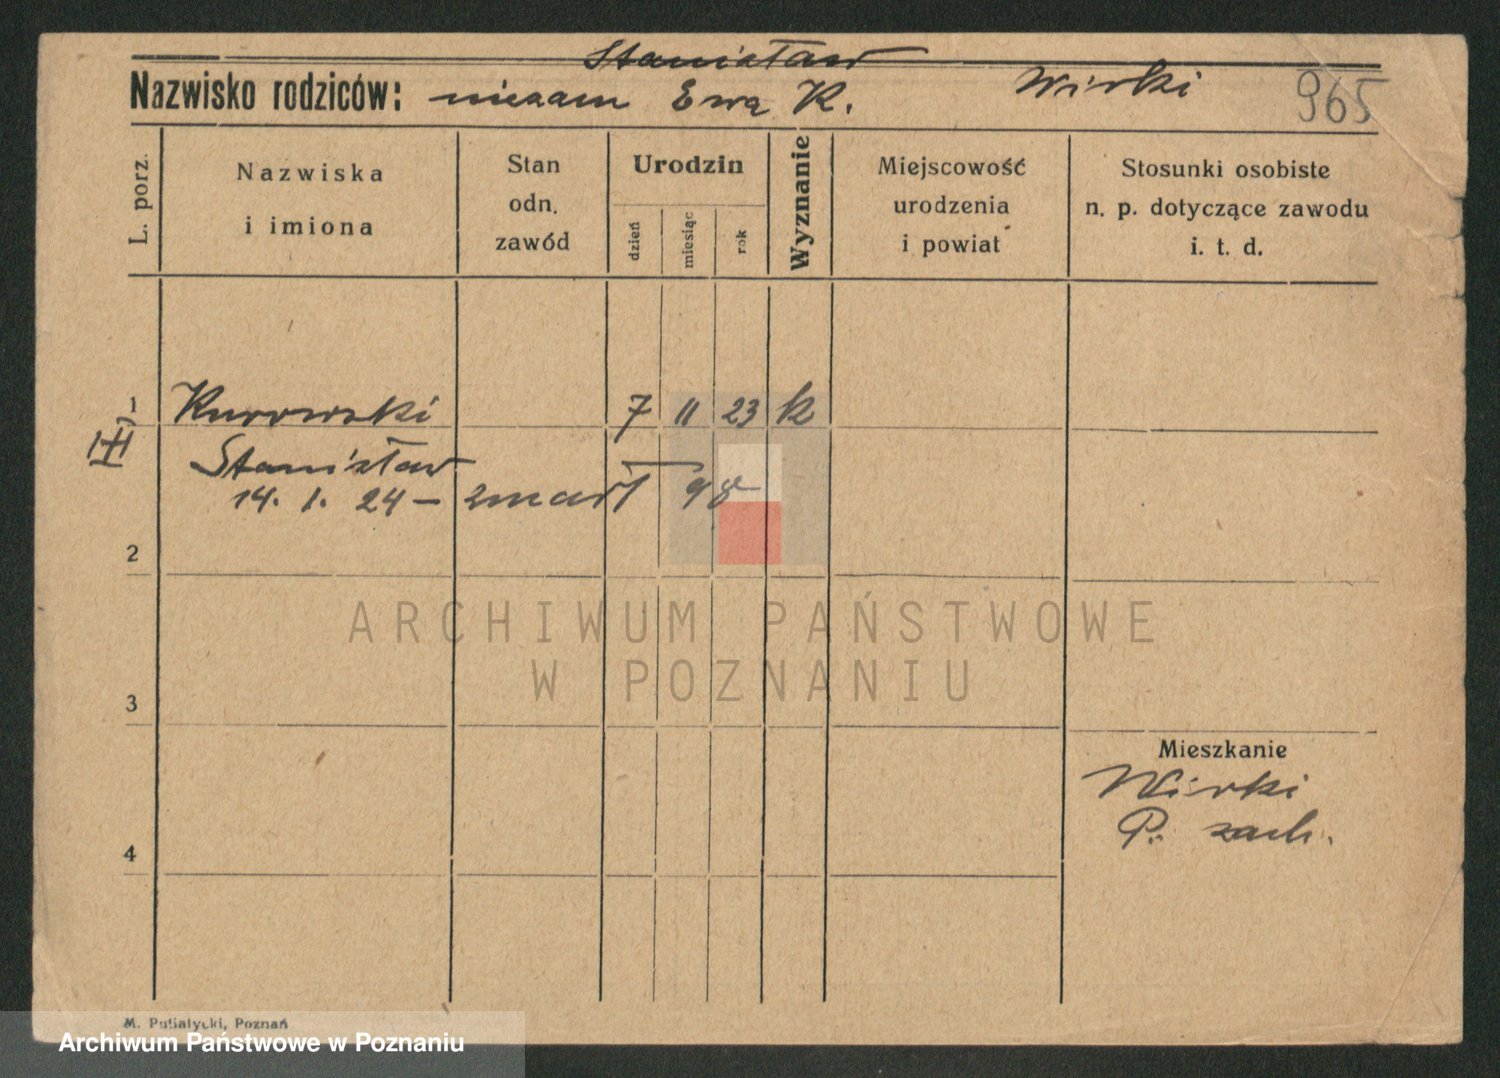 Stanisław
Nazwisko rodziców: niezam Ewa K. Wirki 965
L. porz.
Nazwiska
i imiona
Stan
odn.
zawód
Urodzin
dzień
miesiąc
rok
Wyznanie
Miejscowość
urodzenia
i powiat
Stosunki osobiste
n. p. dotyczące zawodu
i. t. d.
1 Kurowski 7 11 23 k
Stanisław
14. 1. 24 – zmarł 98
2
ARCHIWUM PAŃSTWOWE
W POZNANIU
3
Mieszkanie
Wirki
P. zach.
4
M. Putiatycki, Poznań
Archiwum Państwowe w Poznaniu